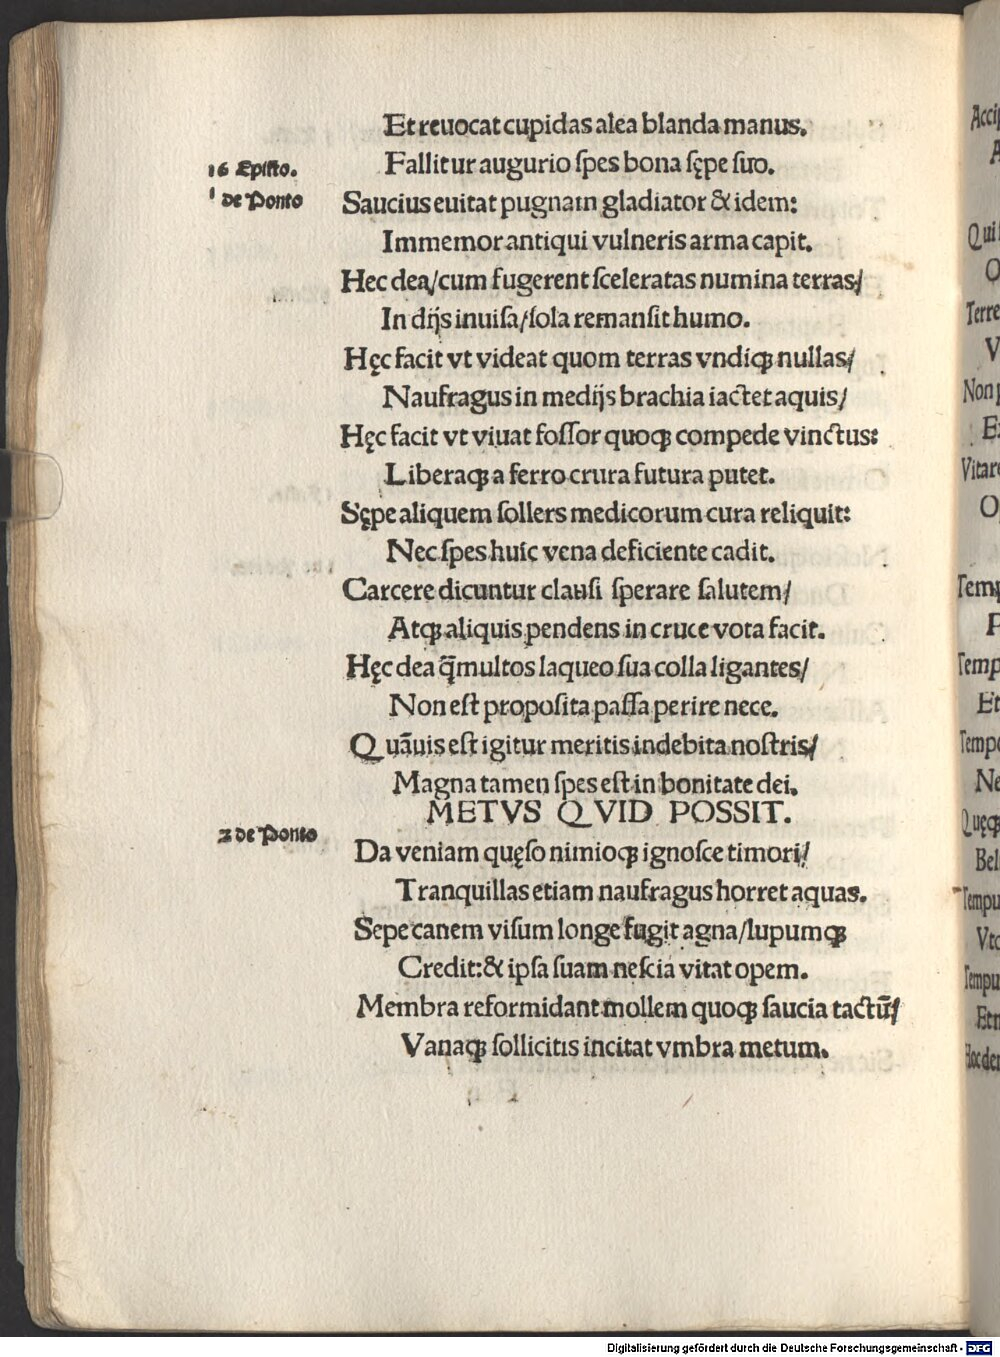 Et reuocat cupidas alea blanda manus.
16 Episto.
Fallitur augurio ſpes bona ſępe ſuo.
1 de Ponto
Saucius euitat pugnam gladiator & idem:
Immemor antiqui vulneris arma capit.
Hec dea/cum fugerent ſceleratas numina terras/
In dijs inuiſa/ſola remanſit humo.
Hęc facit vt videat quom terras vndiqꝫ nullas/
Naufragus in medijs brachia iactet aquis/
Hęc facit vt viuat foſſor quoqꝫ compede vinctus:
Liberaqꝫ a ferro crura futura putet.
Sępe aliquem ſollers medicorum cura reliquit:
Nec ſpes huic vena deficiente cadit.
Carcere dicuntur clauſi ſperare ſalutem/
Atqꝫ aliquis pendens in cruce vota facit.
Hęc dea q̄ꝫ multos laqueo ſua colla ligantes/
Non eſt propoſita paſſa perire nece.
Quāuis eſt igitur meritis indebita noſtris/
Magna tamen ſpes eſt in bonitate dei.
METVS QVID POSSIT.
2 de Ponto
Da veniam quęſo nimioqꝫ ignoſce timori/
Tranquillas etiam naufragus horret aquas.
Sepe canem viſum longe fugit agna/lupumqꝫ
Credit:& ipſa ſuam neſcia vitat opem.
Membra reformidant mollem quoqꝫ ſaucia tactū/
Vanaqꝫ ſollicitis incitat vmbra metum.
Accip
A
Qui
O
Terre
V
Non
E
Vitare
O
Temp
P
Temp
Et
Tempo
Ne
Quęqꝫ
Bel
Tempu
Vtc
Tempu
Et
Hoc de
Digitalisierung gefördert durch die Deutsche Forschungsgemeinschaft - DFG